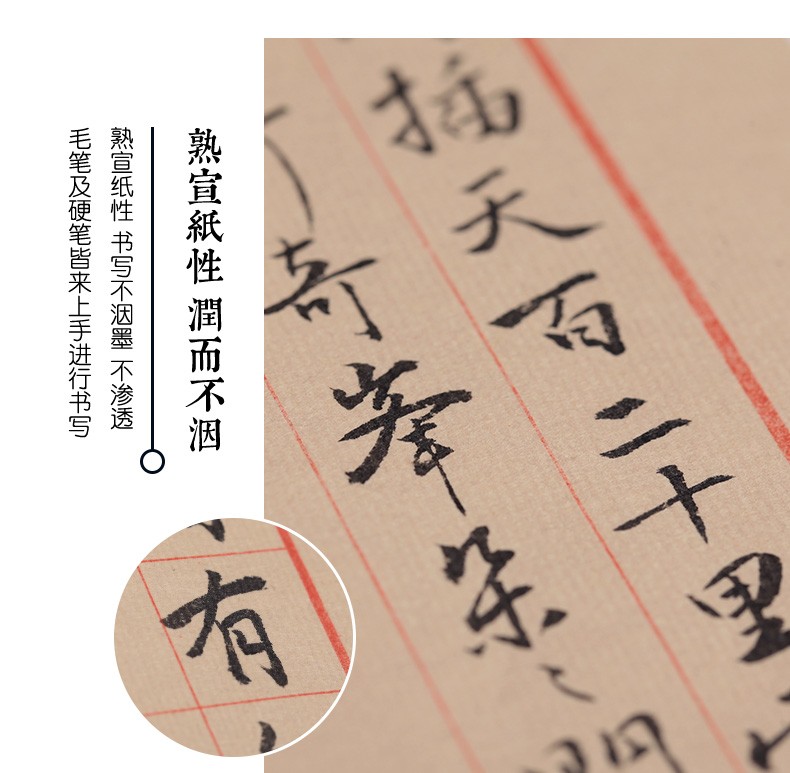 插天百二十里
奇峯朵
熟宣紙性 潤而不洇
熟宣纸性 书写不洇墨 不渗透
毛笔及硬笔皆来上手进行书写
有